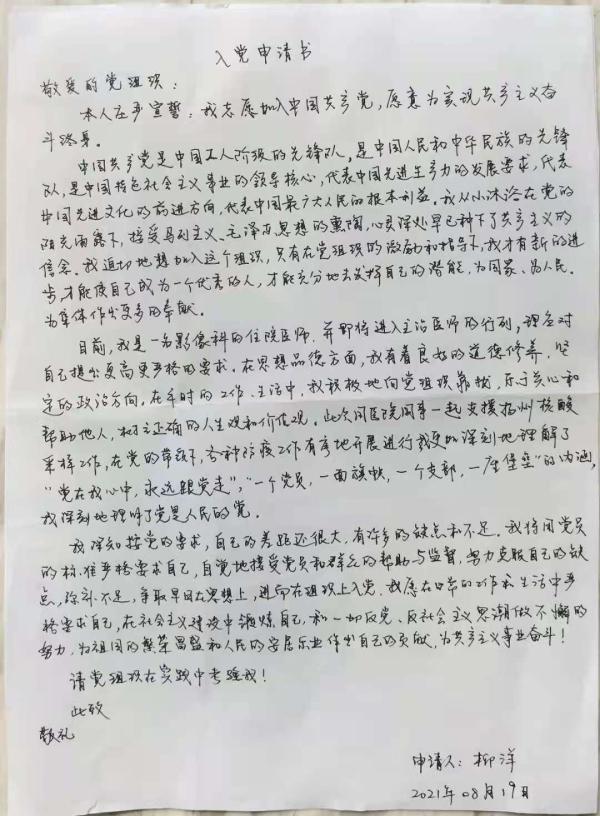 入党申请书
敬爱的党组织:
本人庄严宣誓:我志愿加入中国共产党,愿意为实现共产主义奋
斗终身。
中国共产党是中国工人阶级的先锋队,是中国人民和中华民族的先锋
队,是中国特色社会主义事业的领导核心,代表中国先进生产力的发展要求,代表
中国先进文化的前进方向,代表中国最广大人民的根本利益。我从小沐浴在党的
阳光雨露下,接受马列主义、毛泽东思想的熏陶,心灵深处早已种下了共产主义的
信念。我迫切地想加入这个组织,只有在党组织的激励和指导下,我才有新的进
步,才能使自己成为一个优秀的人,才能充分地去发挥自己的潜能,为国家、为人民、
为集体作出更多的奉献。
目前,我是一名影像科的住院医师,并即将进入主治医师的行列,理应对
自己提出更高更严格的要求。在思想品德方面,我有着良好的道德修养,坚
定的政治方向。在平时的工作、生活中,我积极地向党组织靠拢,乐于关心和
帮助他人,树立正确的人生观和价值观。此次同医院同事一起支援扬州核酸
采样工作,在党的带领下,各种防疫工作有序地开展进行,我更加深刻地理解了
“党在我心中,永远跟党走”,“一个党员,一面旗帜,一个支部,一座堡垒”的内涵,
我深刻地理解了党是人民的党。
我深知按党的要求,自己的差距还很大,有许多的缺点和不足。我将用党员
的标准严格要求自己,自觉地接受党员和群众的帮助与监督,努力克服自己的缺
点,弥补不足,争取早日在思想上,进而在组织上入党。我愿在日常的工作和生活中严
格要求自己,在社会主义建设中锻炼自己,和一切反党、反社会主义思潮做不懈的
努力,为祖国的繁荣昌盛和人民的安居乐业作出自己的贡献,为共产主义事业奋斗!
请党组织在实践中考验我!
此致
敬礼
申请人:柳洋
2021年08月19日